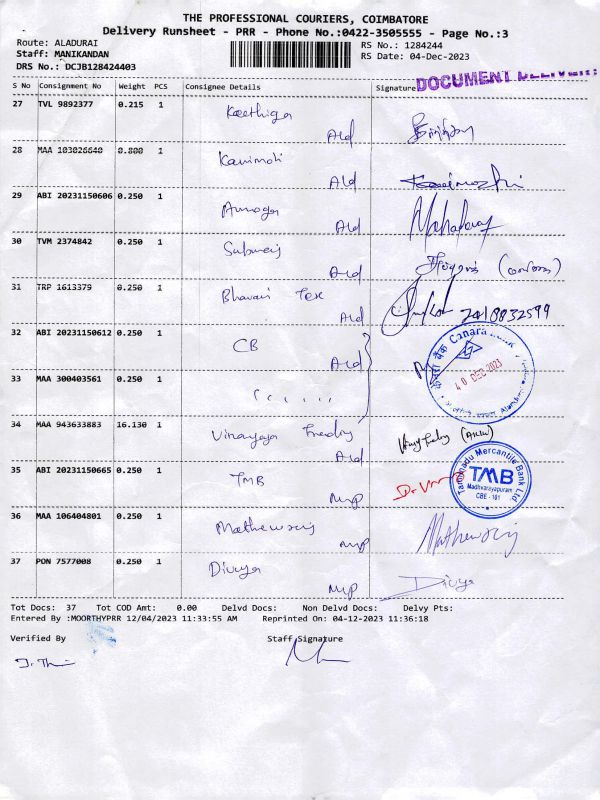 THE PROFESSIONAL COURIERS, COIMBATORE
Delivery Runsheet - PRR - Phone No.:0422-3505555 - Page No.:3
Route: ALADURAI
Staff: MANIKANDAN
DRS No.: DCJB128424403
RS No.: 1284244
RS Date: 04-Dec-2023
DOCUMENT
S No Consignment No Weight PCS Consignee Details Signature
27 TVL 9892377 0.215 1 Keethiga Ald
28 MAA 103026640 0.800 1 Kanimoli Ald Kanimozhi
29 ABI 20231150606 0.250 1 Ald
30 TVM 2374842 0.250 1 Ald
31 TRP 1613379 0.250 1 Bhavani Tex Ald
32 ABI 20231150612 0.250 1 CB Ald
Canara Bank
DEC 2023
33 MAA 300403561 0.250 1
34 MAA 943633883 16.130 1 Vinayaga Ald
35 ABI 20231150665 0.250 1 TMB MVP
Tamilnadu Mercantile Bank Ltd
TMB
Madhvarayapuram
CBE - 161
36 MAA 106404801 0.250 1 Mathewsraj MVP
37 PON 7577008 0.250 1 Divya MVP Divya
Tot Docs: 37 Tot COD Amt: 0.00 Delvd Docs: Non Delvd Docs: Delvy Pts:
Entered By :MOORTHYPRR 12/04/2023 11:33:55 AM Reprinted On: 04-12-2023 11:36:18
Verified By Staff Signature